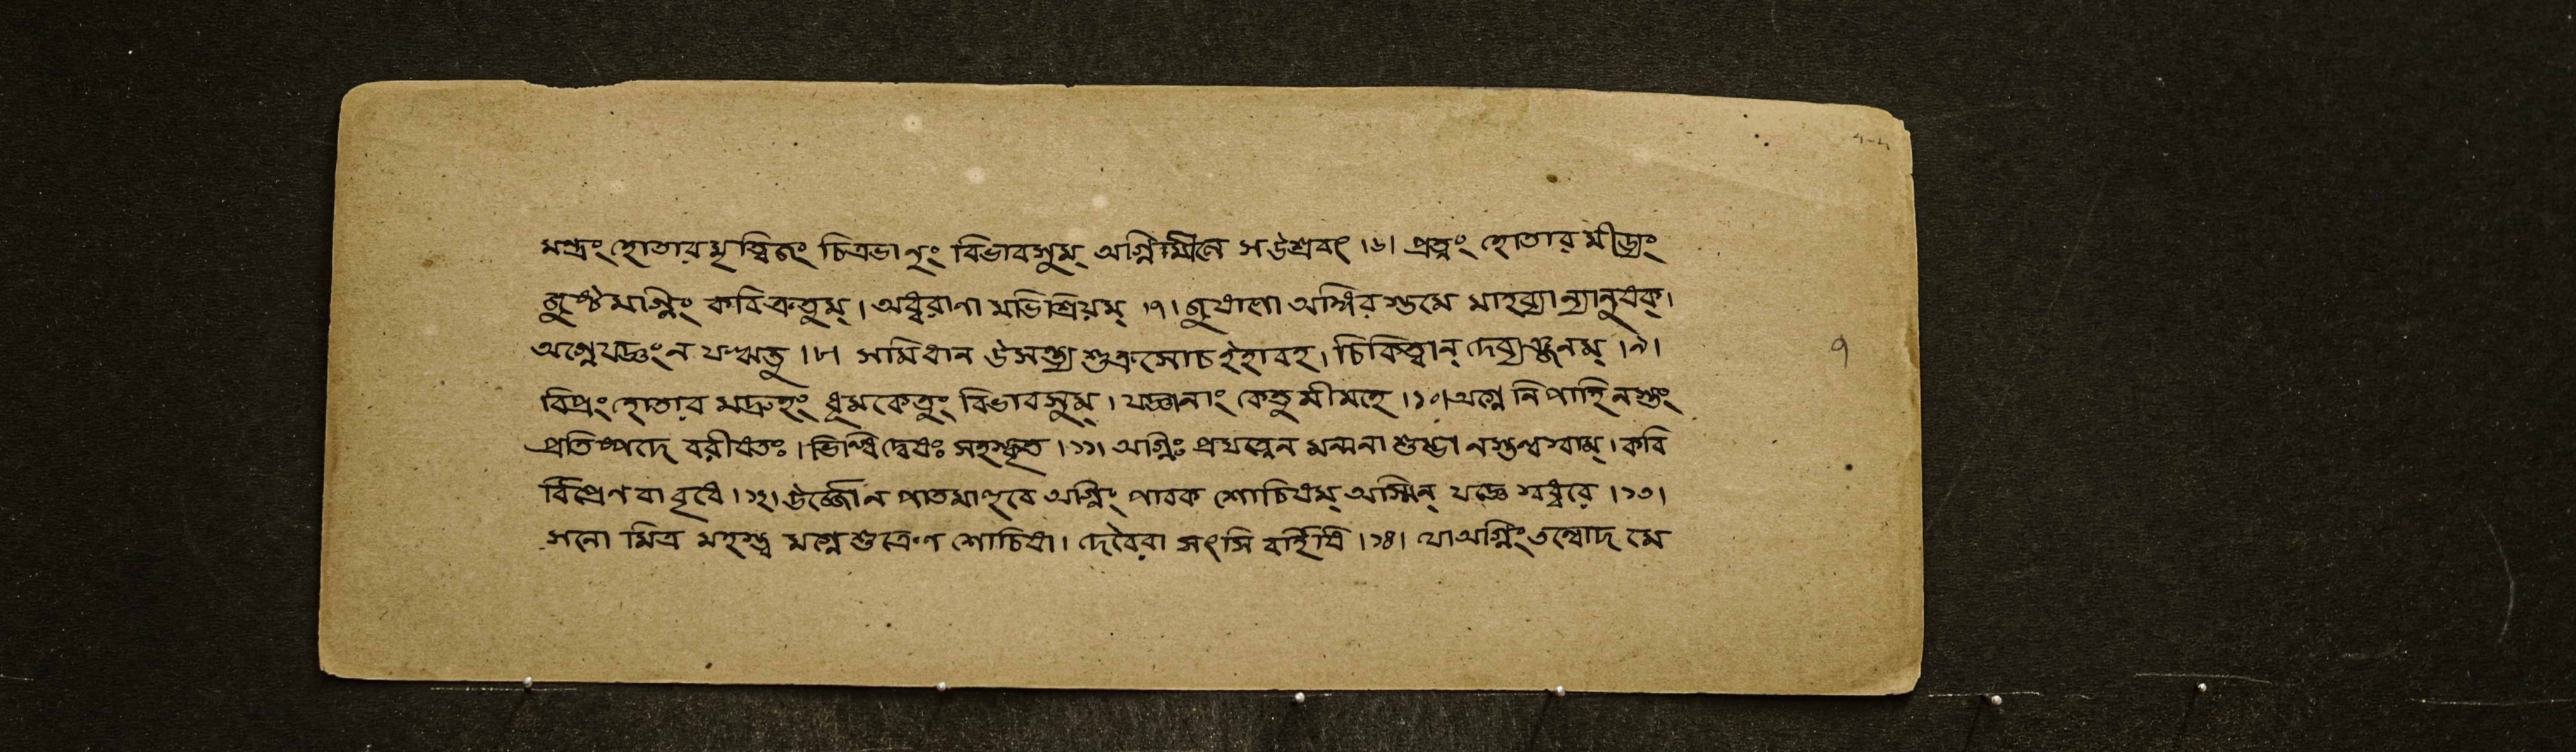 মন্দ্রং হোতারমৃত্বিজং চিত্রভানুং বিভাবসুম্ অগ্নিমীলে সউশ্রবৎ ।৬। প্রত্নং হোতারমীড্যং
জুষ্টমাগ্নিং কবিক্রতুম্। অধ্বরাণামভিশ্রিয়ম্ ।৭। জুষাণো অঙ্গিরস্তমে মাহব্যান্যানুষক্।
অগ্নেযজ্ঞং নয ঋতু ।৮। সমিধান উসন্ত্য শুক্রসোচ ইহাবহ। চিকিত্বান্ দেব্যঞ্জনম্ ।৯।
বিপ্রং হোতারমদ্রুহং ধূমকেতুং বিভাবসুম্। যজ্ঞানাং কেতুমীমহে ।১০। অগ্নে নিপাহি নস্ত্বং
প্রতিষ্মদে বরীষতঃ। ভিন্ধি দ্বেষঃ সহস্কৃত ।১১। অগ্নিঃ প্রযত্নেন মন্মনা শুম্ভানস্তন্বস্বাম্। কবি
র্বিপ্রেণ বাবৃধে ।১২। উর্জ্জোনপাতমাহুবে অগ্নিং পাবক শোচিষম্ অস্মিন্ যজ্ঞে স্বধ্বরে ।১৩।
সনো মিত্র মহস্ত্ব মগ্নেশুক্রেণ শোচিষা। দেবৈরা সৎসি বর্হিষি ।১৪। যো অগ্নিং তন্বোদমে
৭